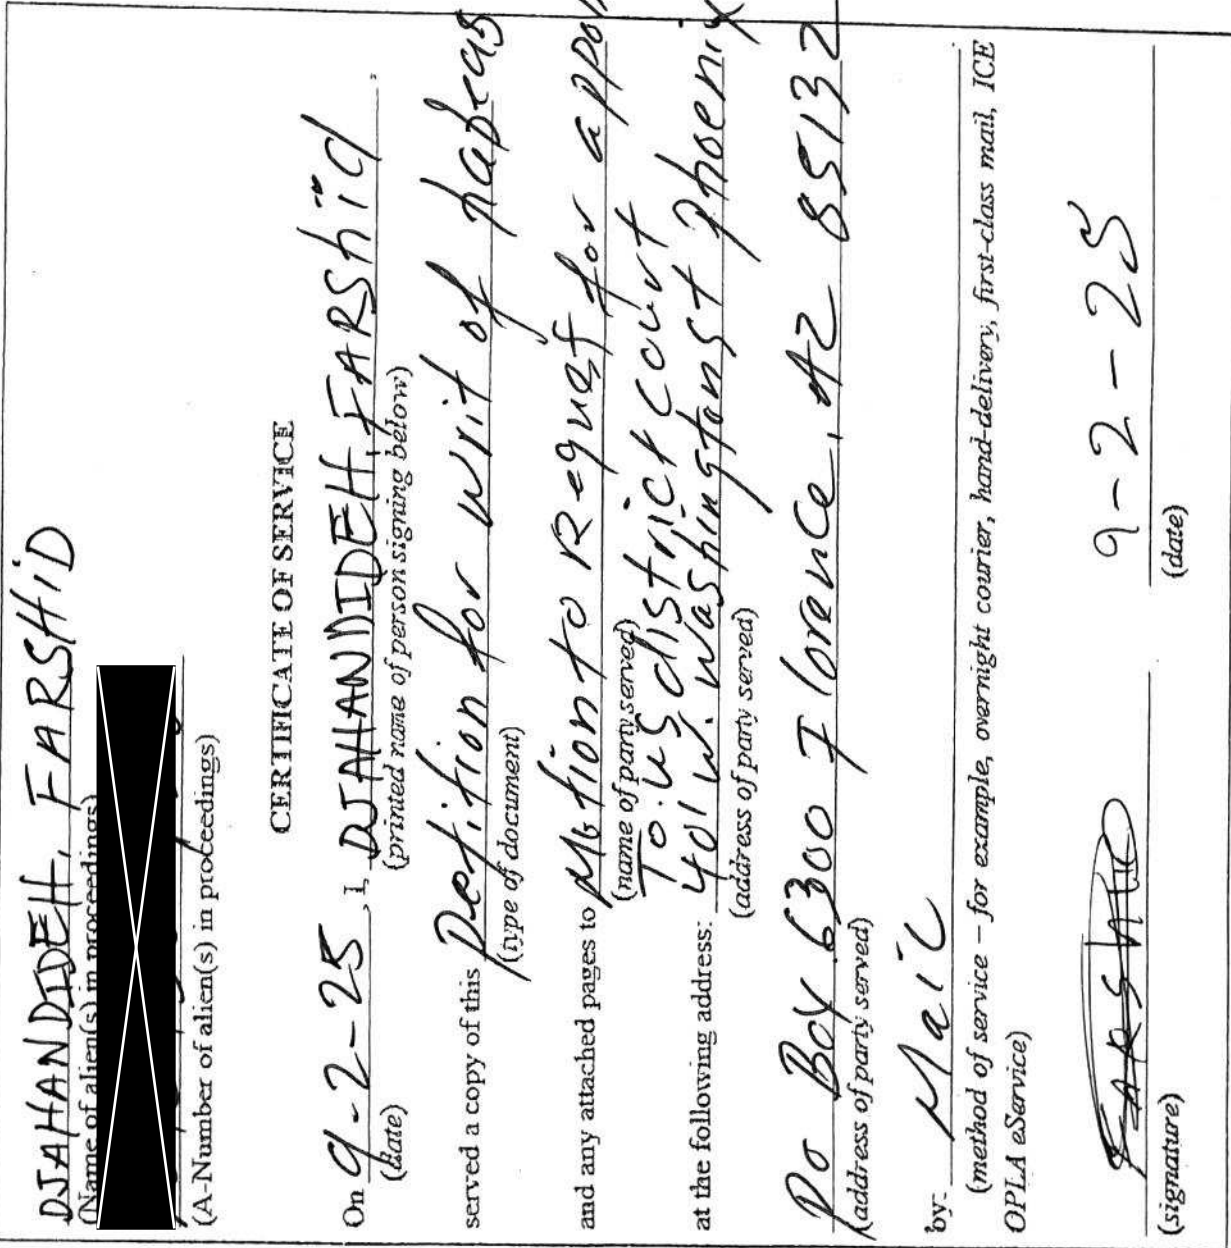 DJAHANDIDEH, FARSHID
(Name of alien(s) in proceedings)
(A-Number of alien(s) in proceedings)
CERTIFICATE OF SERVICE
On 9-2-25, I, DJAHANDIDEH, FARShid,
(date) (printed name of person signing below)
served a copy of this Petition for writ of habeas
(type of document)
and any attached pages to Motion to Request for
(name of party served)
To. us district court
at the following address: 401 w. washingtonst phoenix
(address of party served)
Po Box 6300 Florence, AZ 85132
(address of party served)
by: Mail
(method of service – for example, overnight courier, hand-delivery, first-class mail, ICE
OPLA eService)
FARShid 9-2-25
(signature) (date)